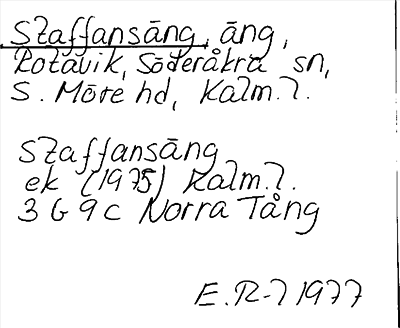 Staffansäng, äng,
Rotavik, Söderåkra sn,
S. Möre hd, Kalm. l.
Staffansäng
ek (1975) Kalm. l.
3 G 9 c Norra Tång
E. R-l 1977